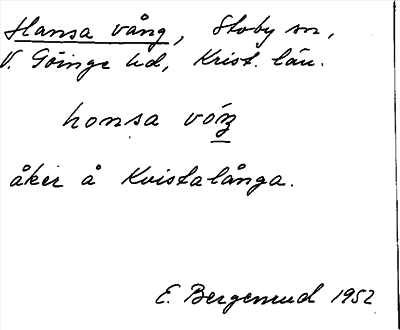 Hansa vång, Stoby sn,
V. Göinge hd, Krist. län.
honsa vóŋ
åker å Kvistalånga.
E. Bergenrud 1952